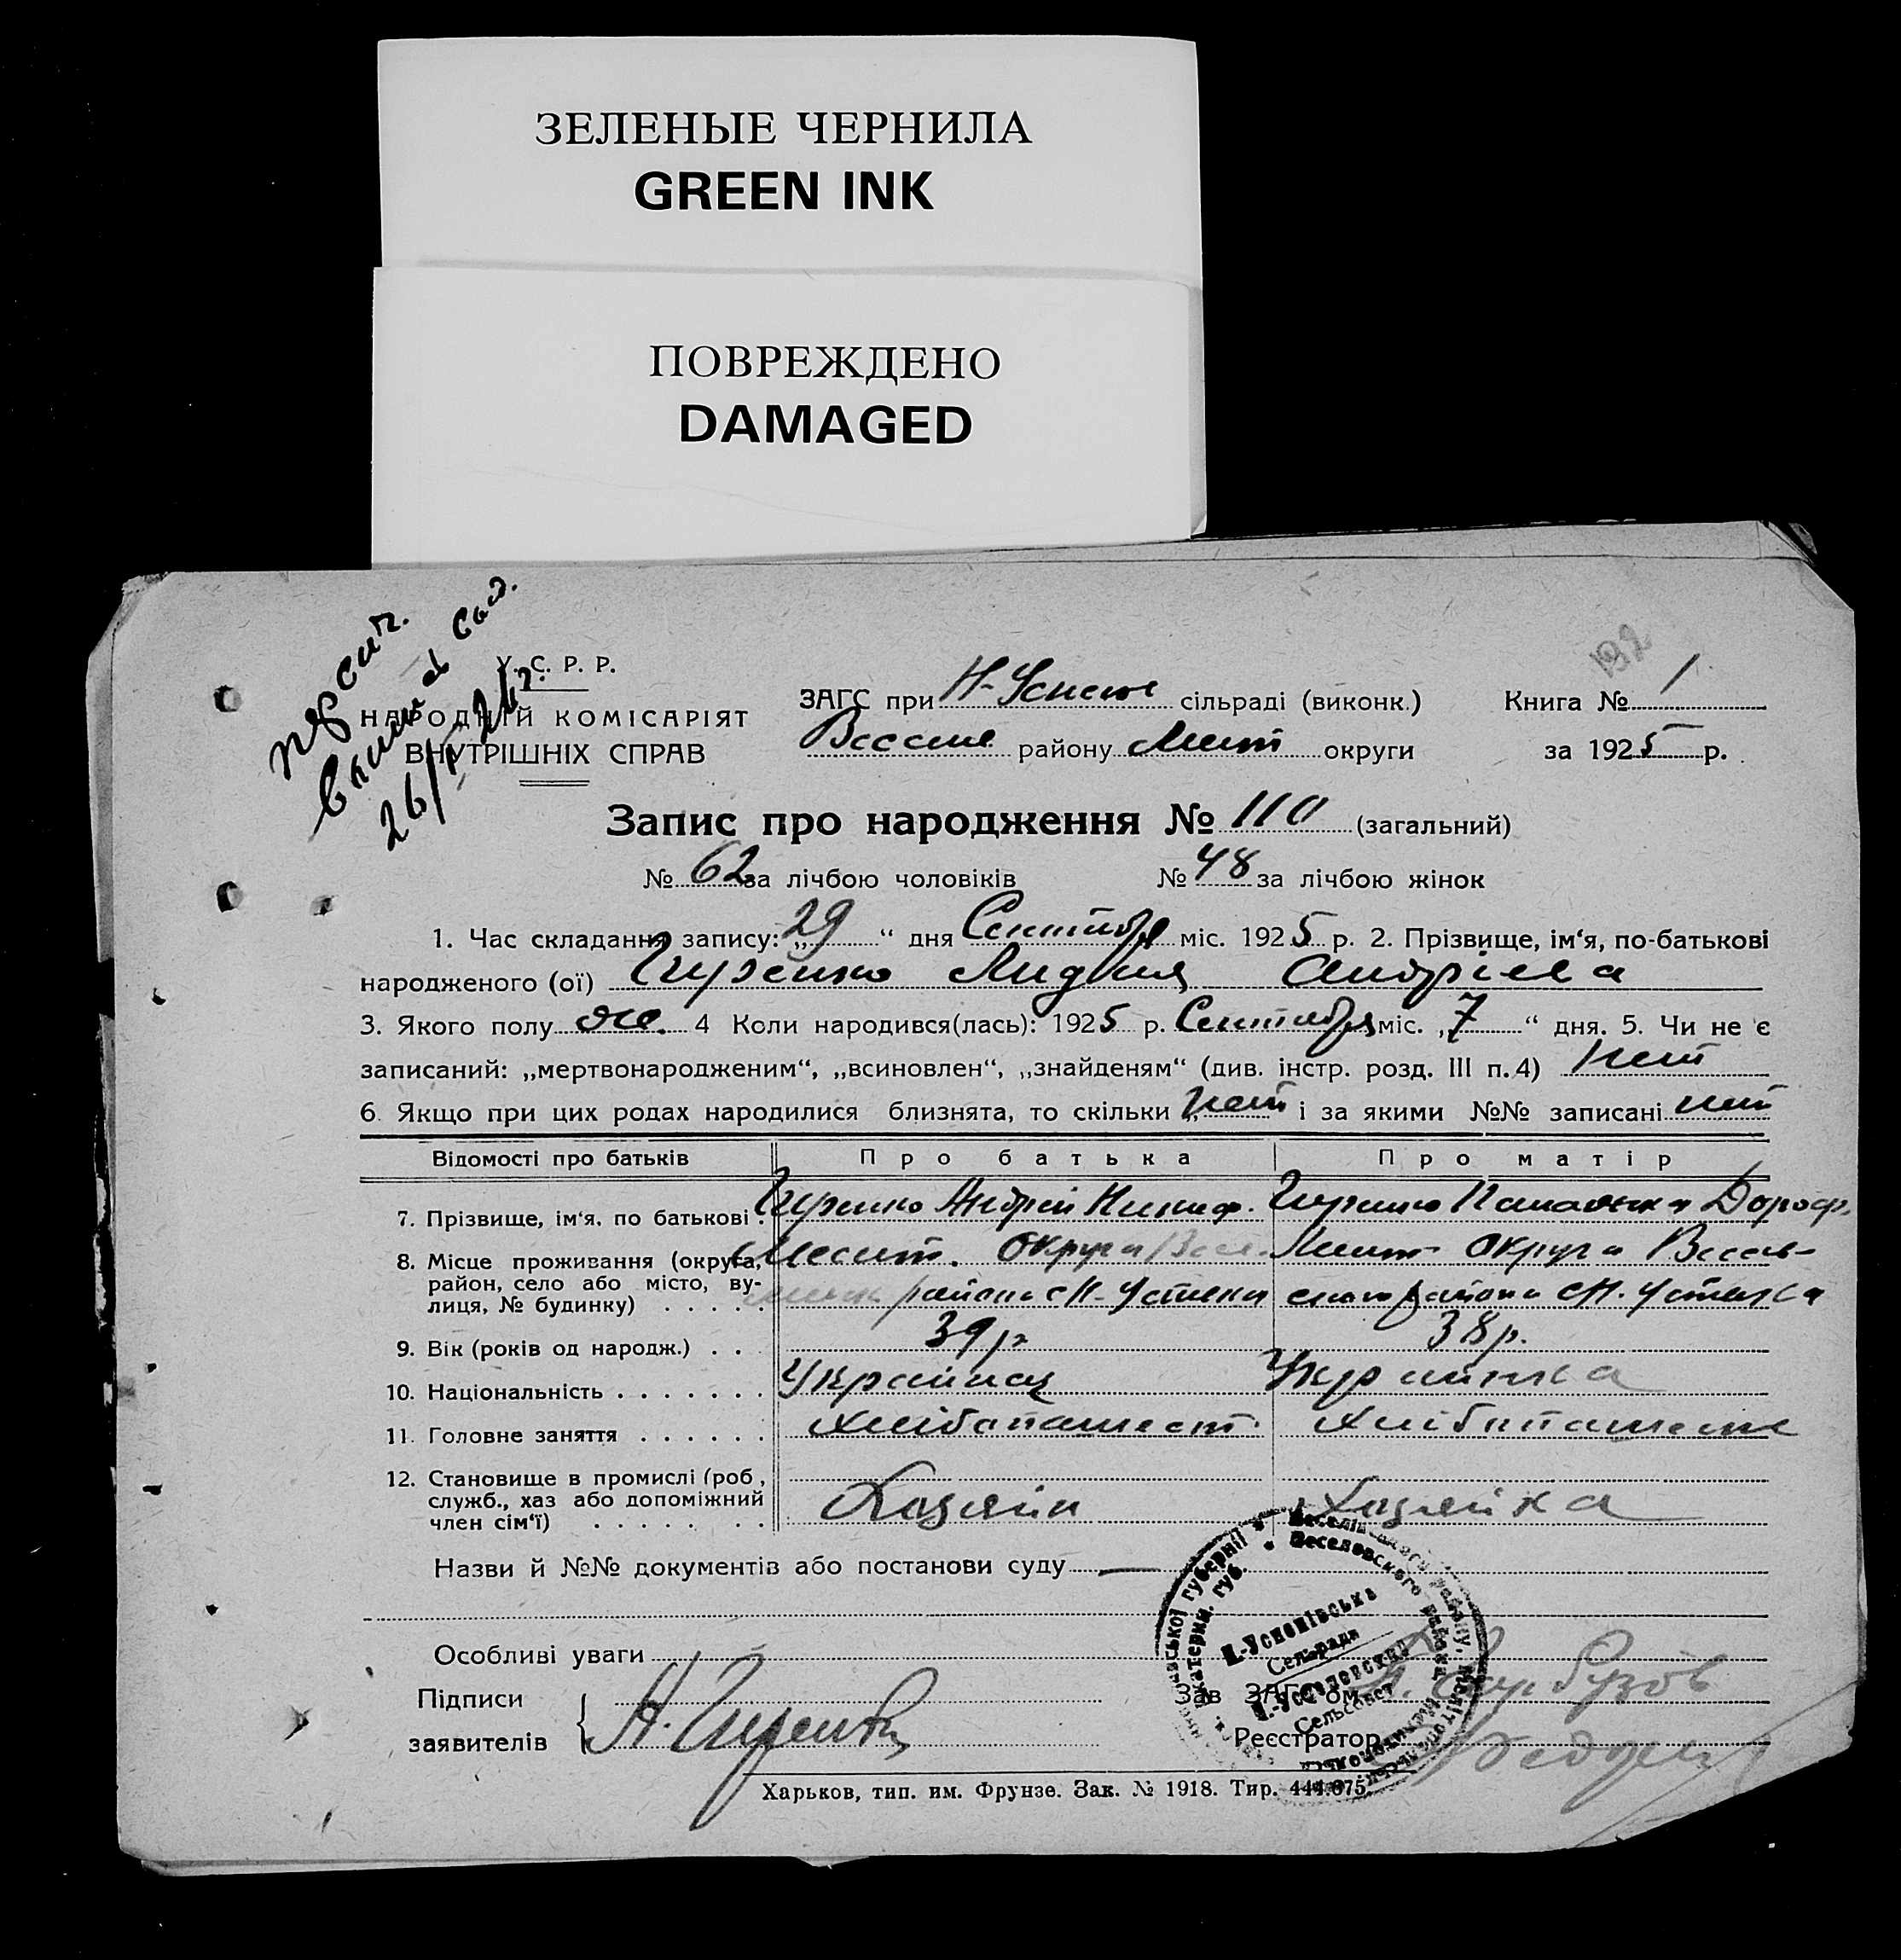 ЗЕЛЕНЫЕ ЧЕРНИЛА
GREEN INK
ПОВРЕЖДЕНО
DAMAGED
У. С. Р. Р.
НАРОДНІЙ КОМІСАРІЯТ
ВНУТРІШНІХ СПРАВ
ЗАГС при Н-Успене сільраді (виконк.)
Весели району Мелит округи
Книга № 1
за 1925 р.
Запис про народження № 110 (загальний)
№ 62 за лічбою чоловіків № 48 за лічбою жінок
1. Час складання запису: „29“ дня Сентября міс. 1925 р. 2. Прізвище, ім‘я, по-батькові
народженого (ої) Гиренко Лидия Андріева
3. Якого полу же. 4 Коли народився(лась): 1925 р. Сентября міс. „7“ дня. 5. Чи не є
записаний: „мертвонародженим“, „всиновлен“, „знайденям“ (див. інстр. розд. III п.4) нет
6. Якщо при цих родах народилися близнята, то скільки нет і за якими №№ записані нет
Відомості про батьків Про батька Про матір
7. Прізвище, ім‘я, по батькові . Гиренко Андрей Никиф. Гиренко Дороф.
8. Місце проживання (округа, Мелит. округа Мелит округа Весел-
район, село або місто, ву- района с Н-Успенка района с Н. Успенка
лиця, № будинку) . . . . .
9. Вік (років од народж.) . . 39 р 38 р.
10. Національність . . . . . . . Українец Українка
11. Головне заняття . . . . . . Хлібопашест. Хлібопашест
12. Становище в промислі (роб,
служб., хаз або допоміжний Хозяїн Хозяйка
член сім‘ї) . . . . . . .
Назви й №№ документів або постанови суду —
Особливі уваги
Підписи
заявителів Н. Гиренко
Зав ЗАГС‘ом
Реєстратор
Н.-Успенівська
Сельрада
Н.-Успеновский
Сельсовет
Веселовского района
Харьков, тип. им. Фрунзе. Зак. № 1918. Тир. 444.675.